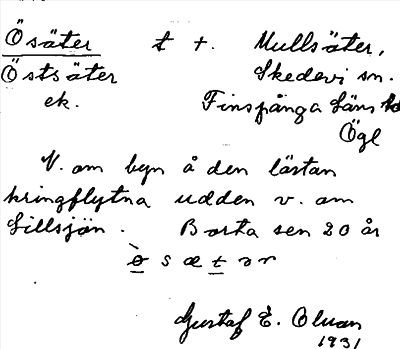 Ösäter t. t. Mullsäter,
Östsäter Skedevi sn.
ek. Finspånga Läns hd
Ögl
V. om byn å den lästan
kringflytna udden v. om
Lillsjön. Borta sen 20 år
ò s æ t ər
Gustaf E. Oluan
1931